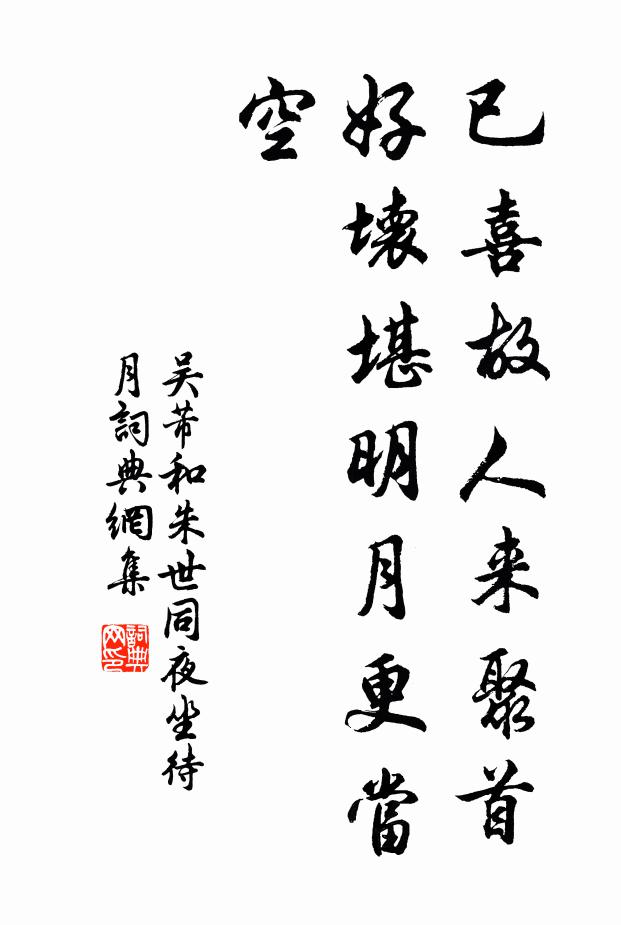 已喜故人来聚首
好壞堪明月更當
空
吴芾和朱世同夜坐待
月詞典網集
詞典
网印